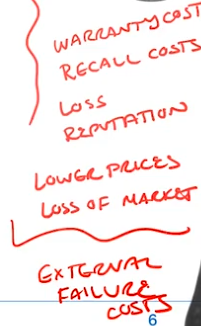 WARRANTY COST
RECALL COSTS
LOSS
REPUTATION
LOWER PRICES
LOSS OF MARKET
EXTERNAL
FAILURE
COSTS
6